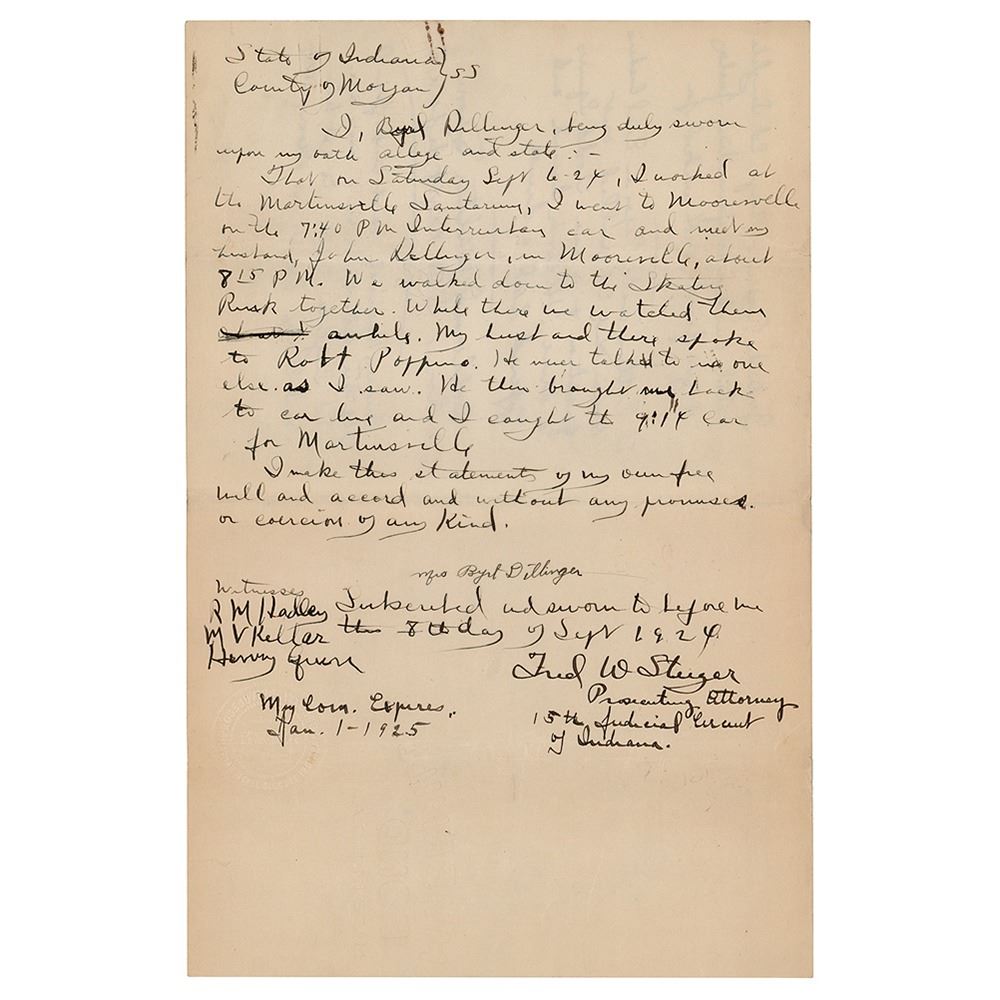 State of Indiana }
County of Morgan } SS
I, Byrl Dillinger, being duly sworn
upon my oath allege and state:-
That on Saturday Sept 6-24, I worked at
the Martinsville Sanitarium, I went to Mooresville
on the 7:40 PM Interurban car and meet my
husband, John Dillinger, in Mooresville, about
8 15 P.M. We walked down to the Skating
Rink together. While there we watched them
awhile. My husband there spoke
to Robt Poppino. He never talked to no one
else as I saw. He then brought me back
to car line and I caught the 9:14 Car
for Martinsville
I make this statements of my own free
will and accord and without any promises.
or coercion of any kind.
Mrs Byrl Dillinger
Witnesses
R M Hadley
M V Kellar
Hervey
Subscribed and sworn to before me
this 8th day of Sept 1924
Fred W Steiger
Prosecuting Attorney
15th Judicial Circuit
of Indiana.
My Com. Expires.
Jan. 1-1925